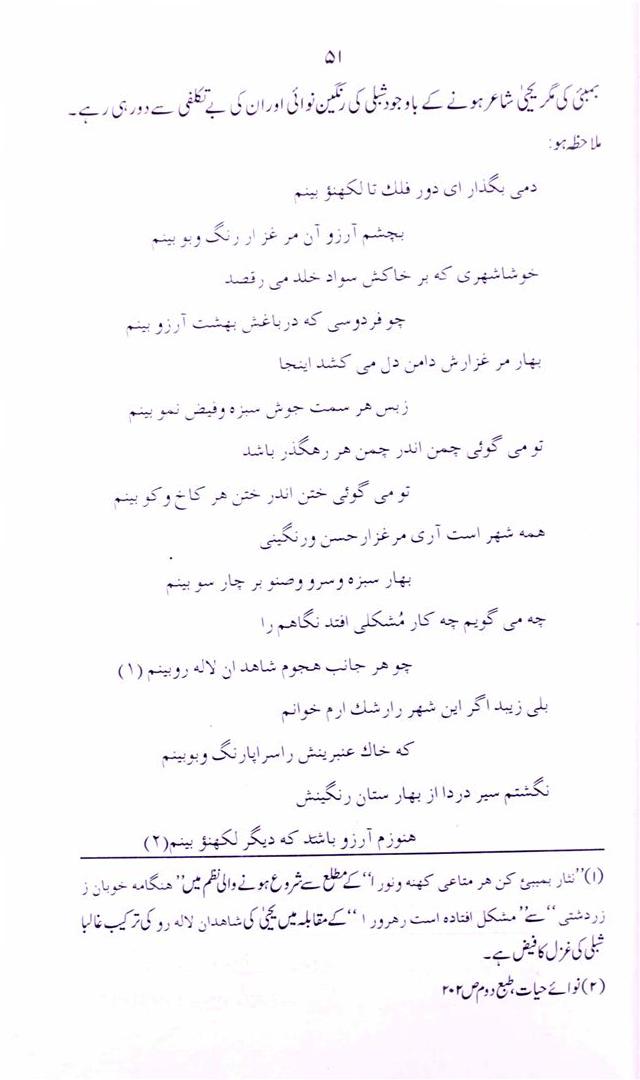 ۵۱
بمبئی کی مگر یحییٰ شاعر ہونے کے باوجود شبلی کی رنگین نوائی اور ان کی بے تکلفی سے دور ہی رہے۔
ملاحظہ ہو:
دمی بگذار ای دور فلك تا لکھنؤ بینم
بچشم آرزو آن مر غزار رنگ وبو بینم
خوشا شهری که بر خاکش سواد خلد می رقصد
چو فردوسی که درباغش بهشت آرزو بینم
بهار مر غزارش دامن دل می کشد اینجا
زبس هر سمت جوش سبزه وفیض نمو بینم
تو می گوئی چمن اندر چمن هر رهگذر باشد
تو می گوئی ختن اندر ختن هر کاخ وکو بینم
همه شهر است آری مرغزار حسن ورنگینی
بهار سبزه وسرو وصنو بر چار سو بینم
چه می گویم چه کار مُشکلی افتد نگاهم را
چو هر جانب هجوم شاهد ان لاله روبینم (۱)
بلی زیبد اگر این شهر رارشك ارم خوانم
که خاك عنبرینش راسراپارنگ وبوبینم
نگشتم سیر دردا از بهار ستان رنگینش
هنوزم آرزو باشد که دیگر لکھنؤ بینم (۲)
(۱) ”نثار بمبئ کن هر متاعی کهنه ونورا“ کے مطلع سے شروع ہونے والی نظم میں ”هنگامه خوبان ز
زردشتی“ سے ”مشکل افتاده است رهرور ا“ کے مقابلہ میں یحییٰ کی شاهدان لاله رو کی ترکیب غالبا
شبلی کی غزل کا فیض ہے۔
(۲) نوائے حیات، طبع دوم ص ۲۰۲